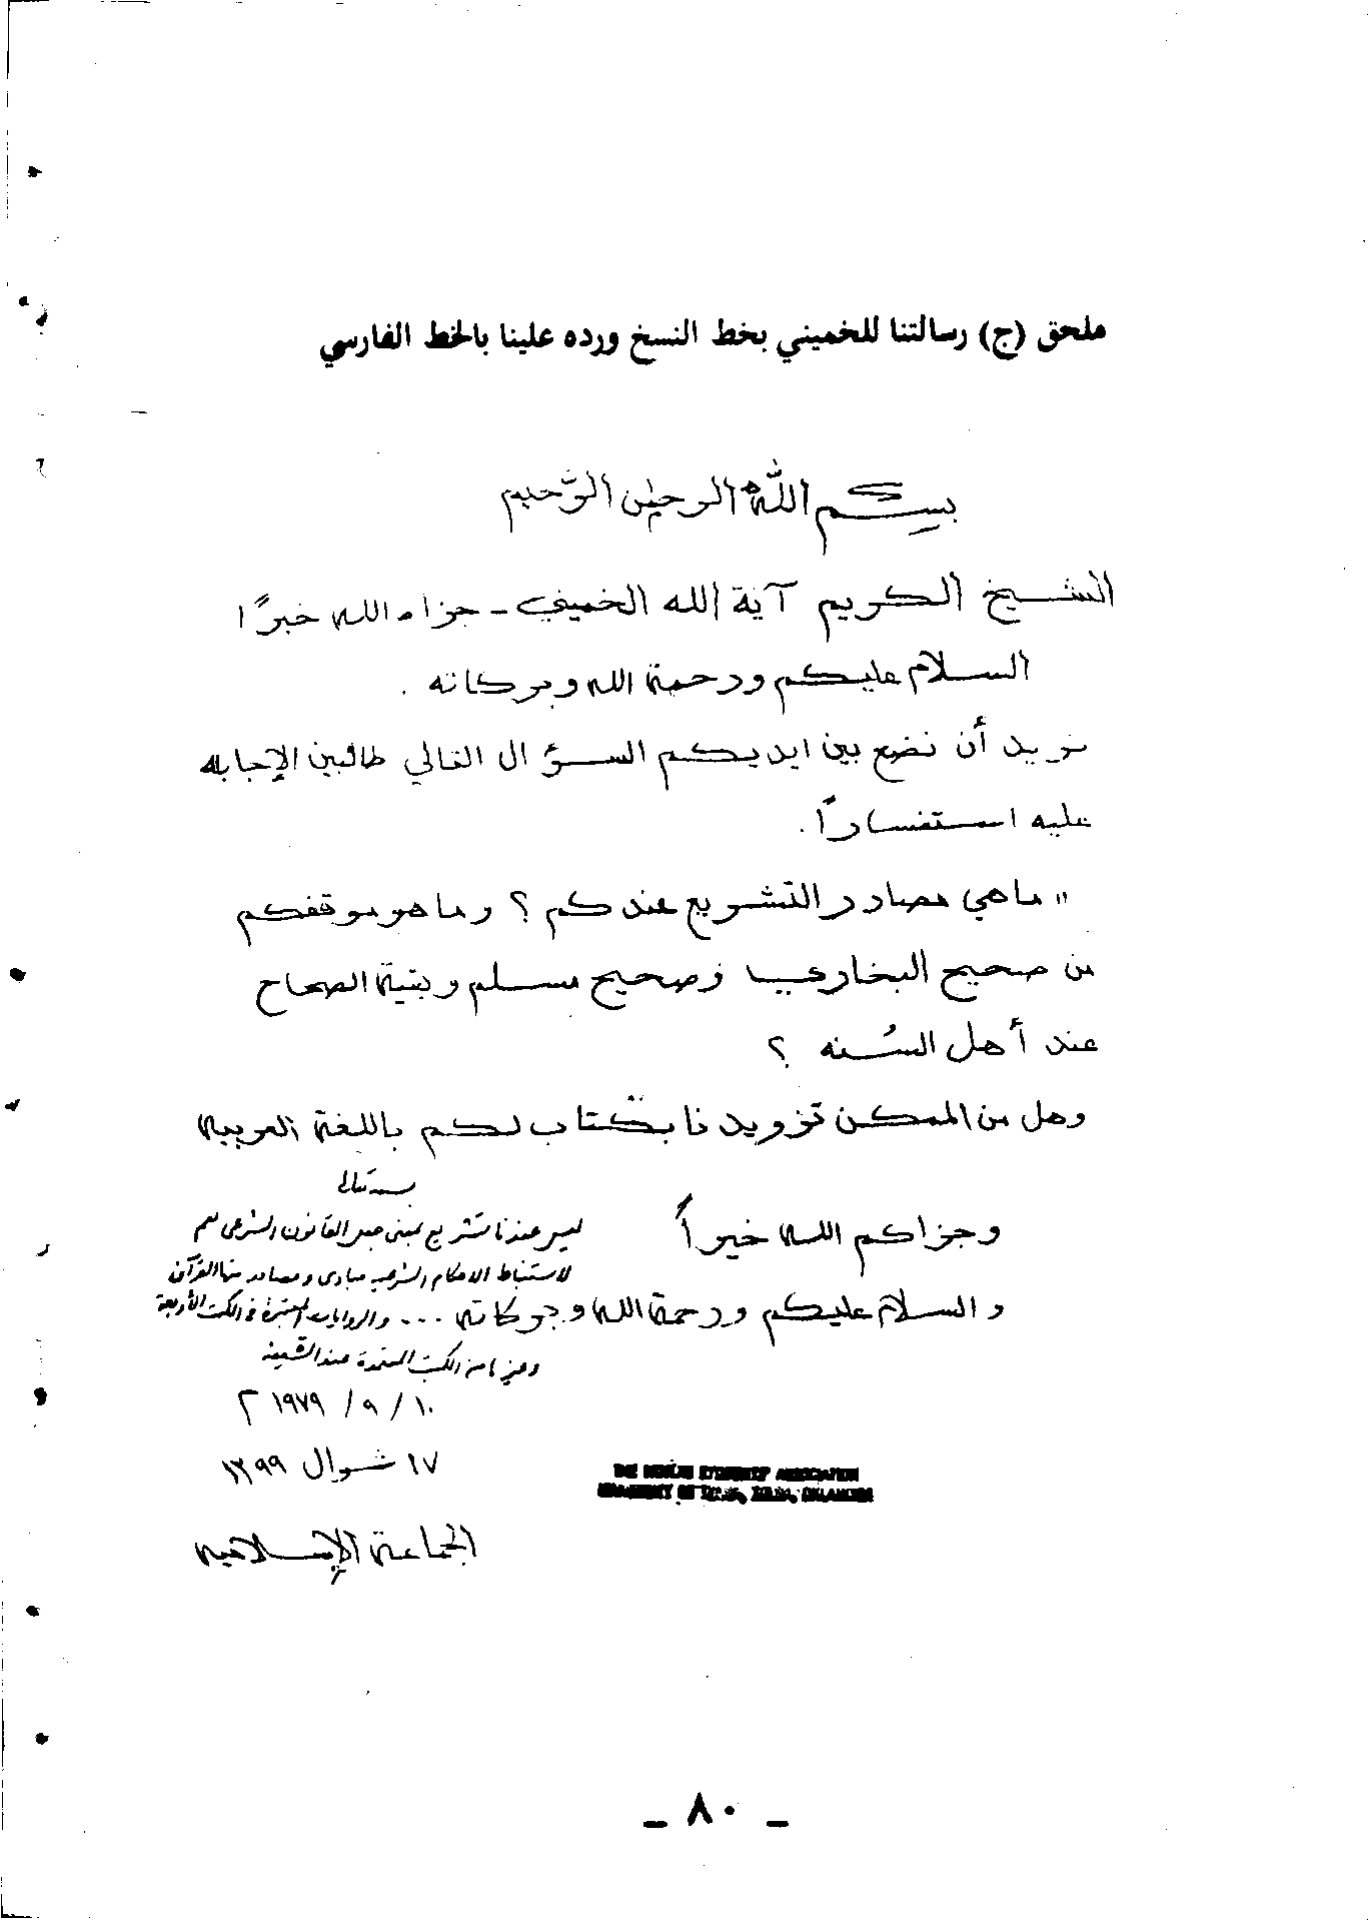 ملحق (ج) رسالتنا للخميني بخط النسخ ورده علينا بالخط الفارسي
بسم الله الرحمن الرَّحيم
الشيخ الكريم آية الله الخميني - جزاه الله خيرًا
السلام عليكم ورحمة الله وبركاته .
نريد أن نضع بين ايديكم السؤال التالي طالبين الإجابه
عليه استفسارًا .
" ماهي مصادر التشريع عندكم ؟ وما هو موقفكم
من صحيح البخاري وصحيح مسلم وبقية الصحاح
عند أهل السُنه ؟
وهل من الممكن تزويدنا بكتاب لكم باللغة العربيه
وجزاكم الله خيراً
والسلام عليكم ورحمة الله وبركاته ...
بسمه تعالى
ليس عندنا تشريع بمعنى جعل القانون الشرعى نعم
لاستنباط الاحكام الشرعيه مبادى ومصادر منها القرآن
والروايات المعتبرة فى الكتب الأربعة
وغيرها من الكتب المعتمدة عند الشيعه
١٠ / ٩ / ١٩٧٩ م
١٧ شوال ١٣٩٩
الجماعة الإسلاميه
- ٨٠ -